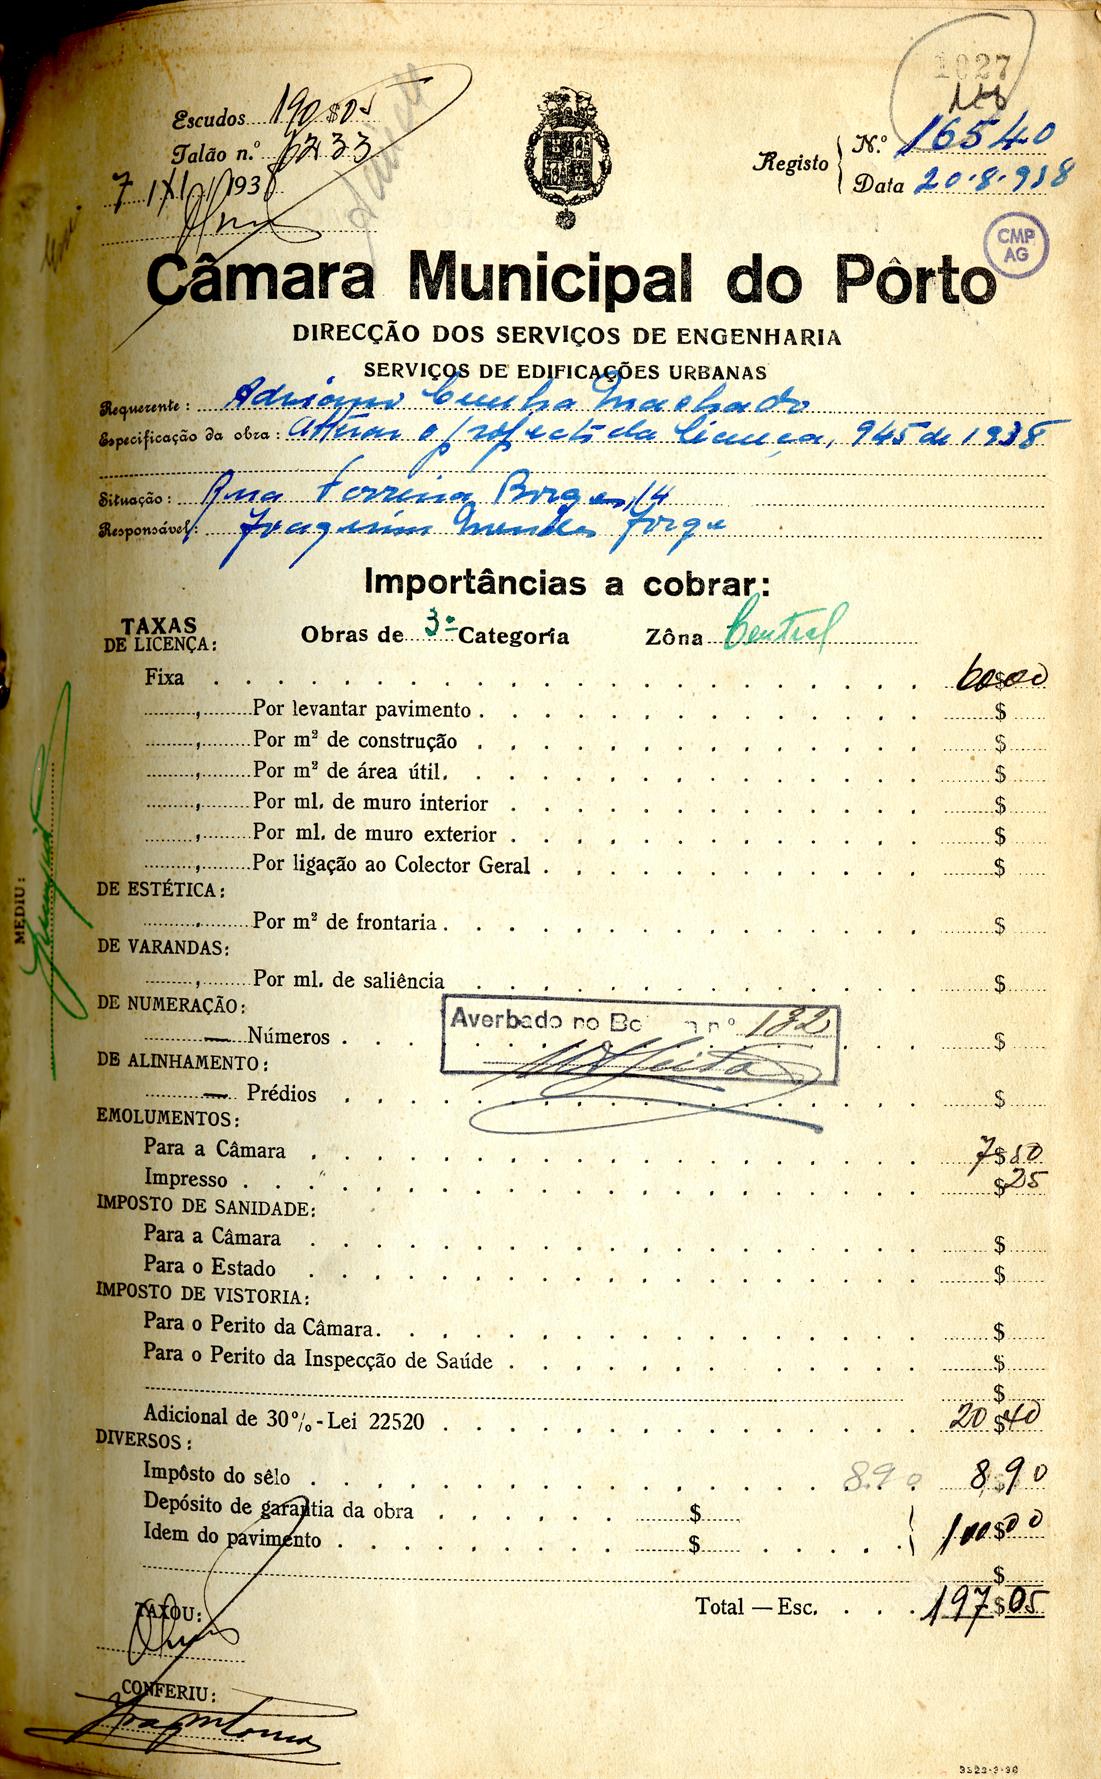 1027
Escudos 190$05
Talão n.º 1233
7 / XI / 1938
Registo
N.º 16540
Data 20.8.938
CMP
AG
Câmara Municipal do Pôrto
DIRECÇÃO DOS SERVIÇOS DE ENGENHARIA
SERVIÇOS DE EDIFICAÇÕES URBANAS
Requerente: Adriano Cunha Machado
Especificação da obra: Alterar o projecto da licença, 945 de 1938
Situação: Rua Ferreira Borges, 14
Responsável: Joaquim Mendes Jorge
Importâncias a cobrar:
TAXAS
DE LICENÇA:
Obras de 3ª Categoria Zôna Central
Fixa . . . 60$00
........,........Por levantar pavimento . . . $
........,........Por m² de construção . . . $
........,........Por m² de área útil. . . . $
........,........Por ml. de muro interior . . . $
........,........Por ml. de muro exterior . . . $
........,........Por ligação ao Colector Geral . . . $
DE ESTÉTICA:
........,........Por m² de frontaria . . . $
DE VARANDAS:
........,........Por ml. de saliência . . . $
DE NUMERAÇÃO:
— Números . . . $
Averbado no Bo n nº 132
DE ALINHAMENTO:
— Prédios . . . $
EMOLUMENTOS:
Para a Câmara . . . 7$50
Impresso . . . $25
IMPOSTO DE SANIDADE:
Para a Câmara . . . $
Para o Estado . . . $
IMPOSTO DE VISTORIA:
Para o Perito da Câmara. . . . $
Para o Perito da Inspecção de Saúde . . . $
$
Adicional de 30%-Lei 22520 . . . 20$40
DIVERSOS:
Impôsto do sêlo . . . 8.90 8$90
Depósito de garantia da obra . . . $
Idem do pavimento . . . $ . . . 100$00
$
Total — Esc. . . . 197$05
MEDIU:
TAXOU:
CONFERIU:
3322-3-36